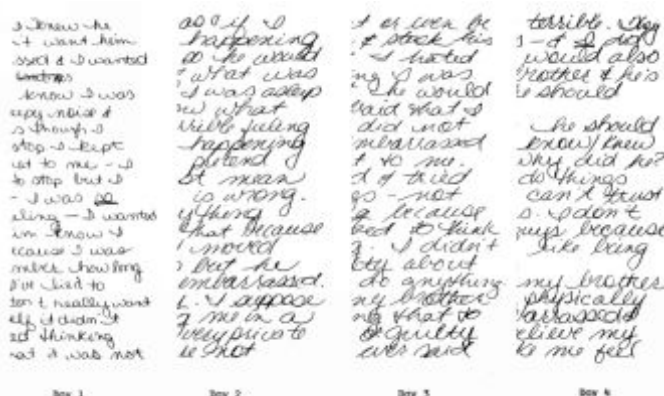 I knew he
it want him
ssed & I wanted
know I was
eepy noise &
s though I
stop I kept
st to me - I
to stop but I
- I was so
eling - I wanted
im know I
ecause I was
ember how long
I've lied to
don't really want
elf it didn't
ed thinking
hat it was not
Day 1
as if I
happening
so he would
what was
I was asleep
ow what
rrible feeling
happening
pretend
st mean
is wrong.
ything
that because
I moved
but he
embarrassed.
. I suppose
g me in a
very private
be not
Day 2
t or even be
& stock his
I hated
ng I was
he would
raid what I
did not
mbarrassed
t to me.
d I tried
gs - not
g because
ted to think
g. I didn't
lty about
do anything
my brother
ng that to
or guilty
ever said
Day 3
terrible. They
- & I do
would also
brother & he's
he should
he should
know/knew
why did he?
do things
can't trust
s. I don't
guys because
like being
my brother
physically
arrassed
elieve my
ke me feel
Day 4